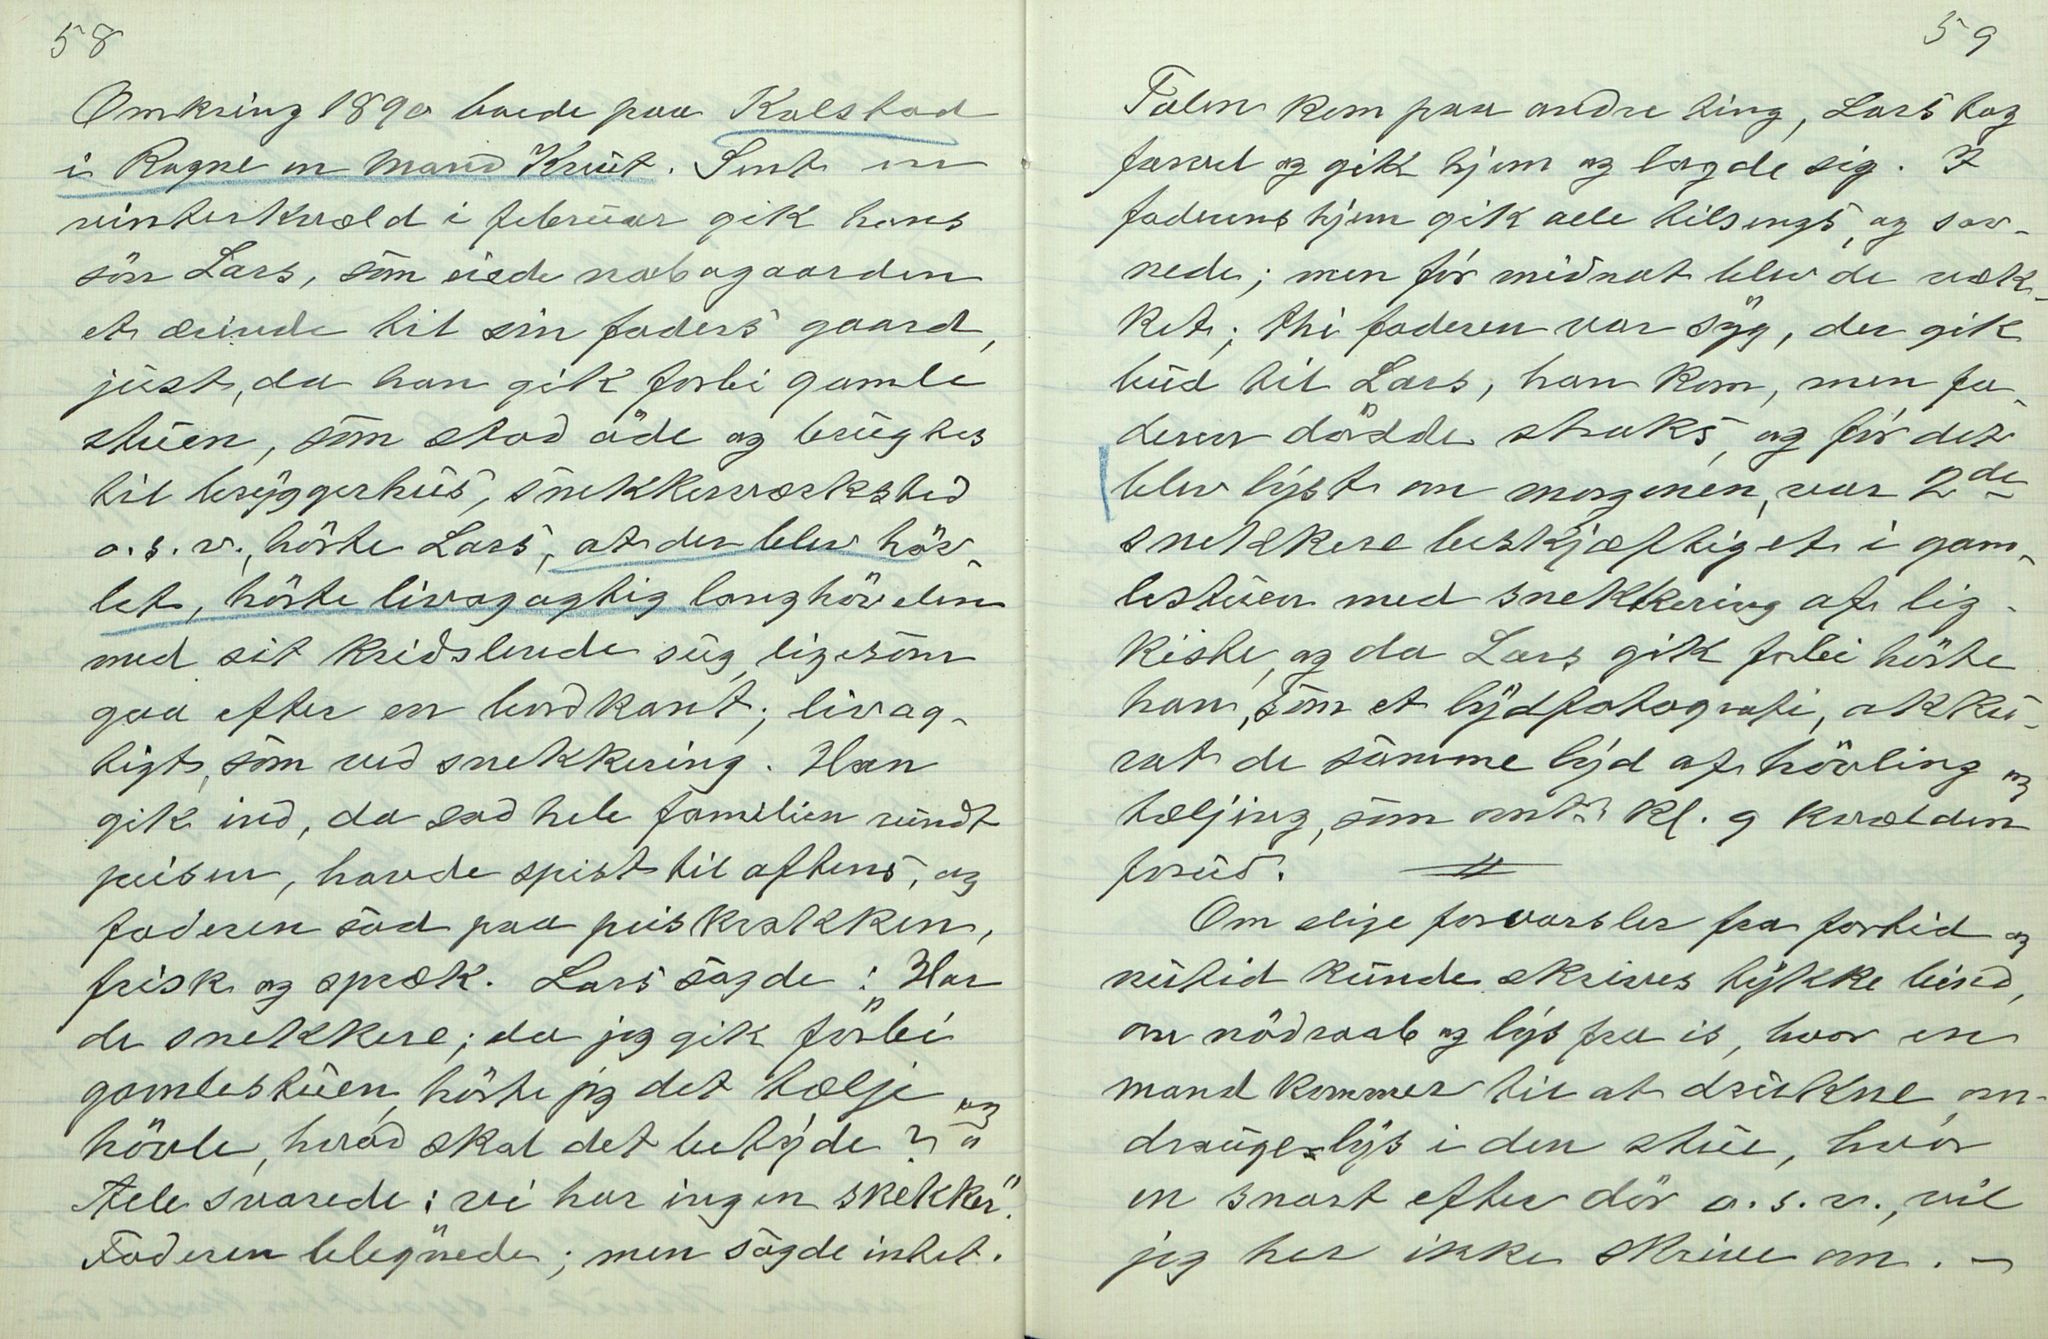 58
Omkring 1890 boede paa Kolstad
i Rogne en Mand Knut. Sent en
vinterkvæld i februar gik hans
sön Lars, som eiede nabogaarden
et ærinde til sin faders gaard,
just, da han gik forbi gamle
stuen, som stod öde og brugtes
til bryggerhus, snekkerverksted
o.s.v., hörte Lars, at der blev höv-
let, hörte livagagtig langhövelen
med sit kridslende sug, ligesom
gaa efter en bordkant; livag-
tigt, som ved snekkering. Han
gik ind, da sad hele familien rundt
peisen, havde spist til aftens, og
faderen sad paa peiskrakken,
frisk og spræk. Lars sagde: "Har
de snekkere; da jeg gik forbi
gamlestuen, hörte jeg det tælje og
hövle, hvad skal det betyde?"
Alle svarede: "vi har ingen snekker".
Faderen blegnede; men sagde intet.
59
Talen kom paa andre ting, Lars tog
farvel og gik hjem og lagde sig. I
faderens hjem gik alle tilsengs, og sov-
nede; men för midnat blev de væk-
ket; thi faderen var syg, der gik
bud til Lars, han kom, men fa-
deren dödde straks, og för det
blev lyst om morgenen, var 2de
snekkere beskjæftiget i gam-
lestuen med snekkering af lig-
kiste, og da Lars gik forbi hörte
han, som et lydfotografi, akku-
rat de samme lyd af hövling og
tæljing, som omtr. kl. 9 kvælden
forud.
Om slige forvarsler fra fortid og
nutid kunde skrives tykke bind,
om nödraab og lys fra is, hvor en
mand kommer til at drukne, om
drauge-lys i den stue, hvor
en snart efter dör o.s.v., vil
jeg her ikke skrive om. —